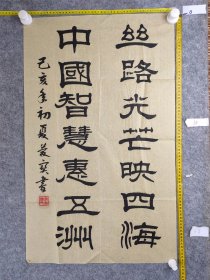 丝路光芒映四海
中國智慧惠五洲
己亥年初夏爱寳書